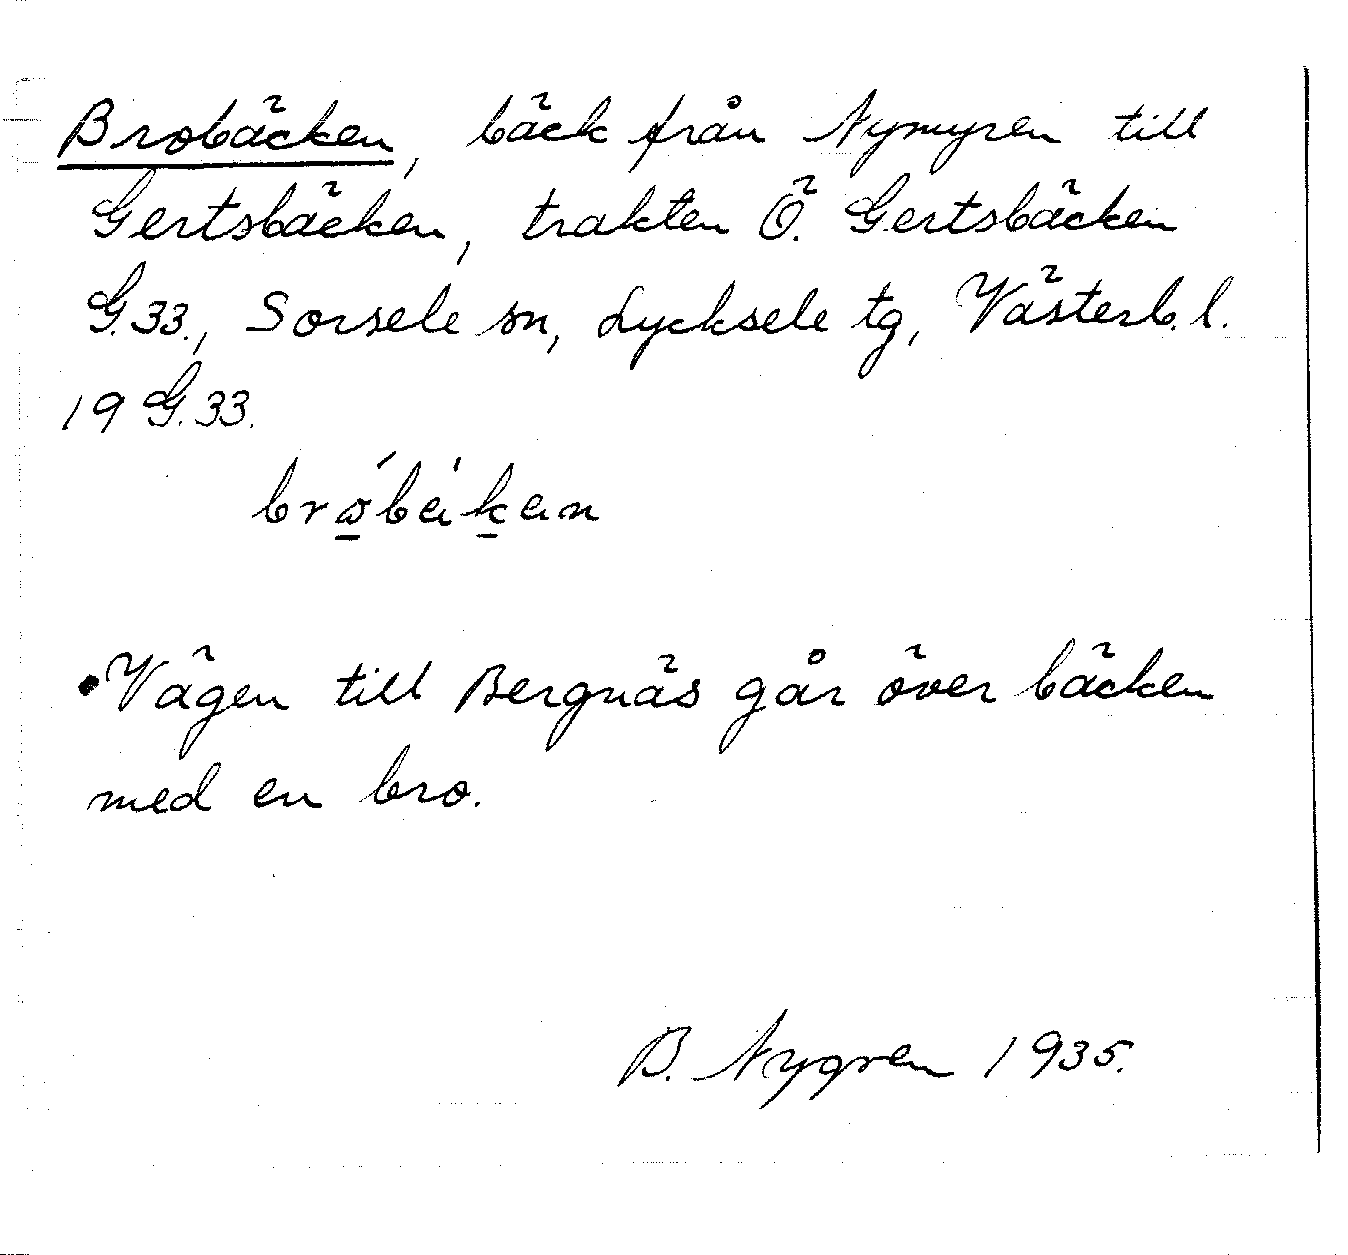 Brobäcken, bäck från Nymyren till
Gertsbäcken, trakten Ö. Gertsbäcken
G.33., Sorsele sn, Lycksele tg, Västerb. l.
19 G.33.
bro̲´bä'k̲en
•Vägen till Bergnäs går över bäcken
med en bro.
B. Nygren 1935.